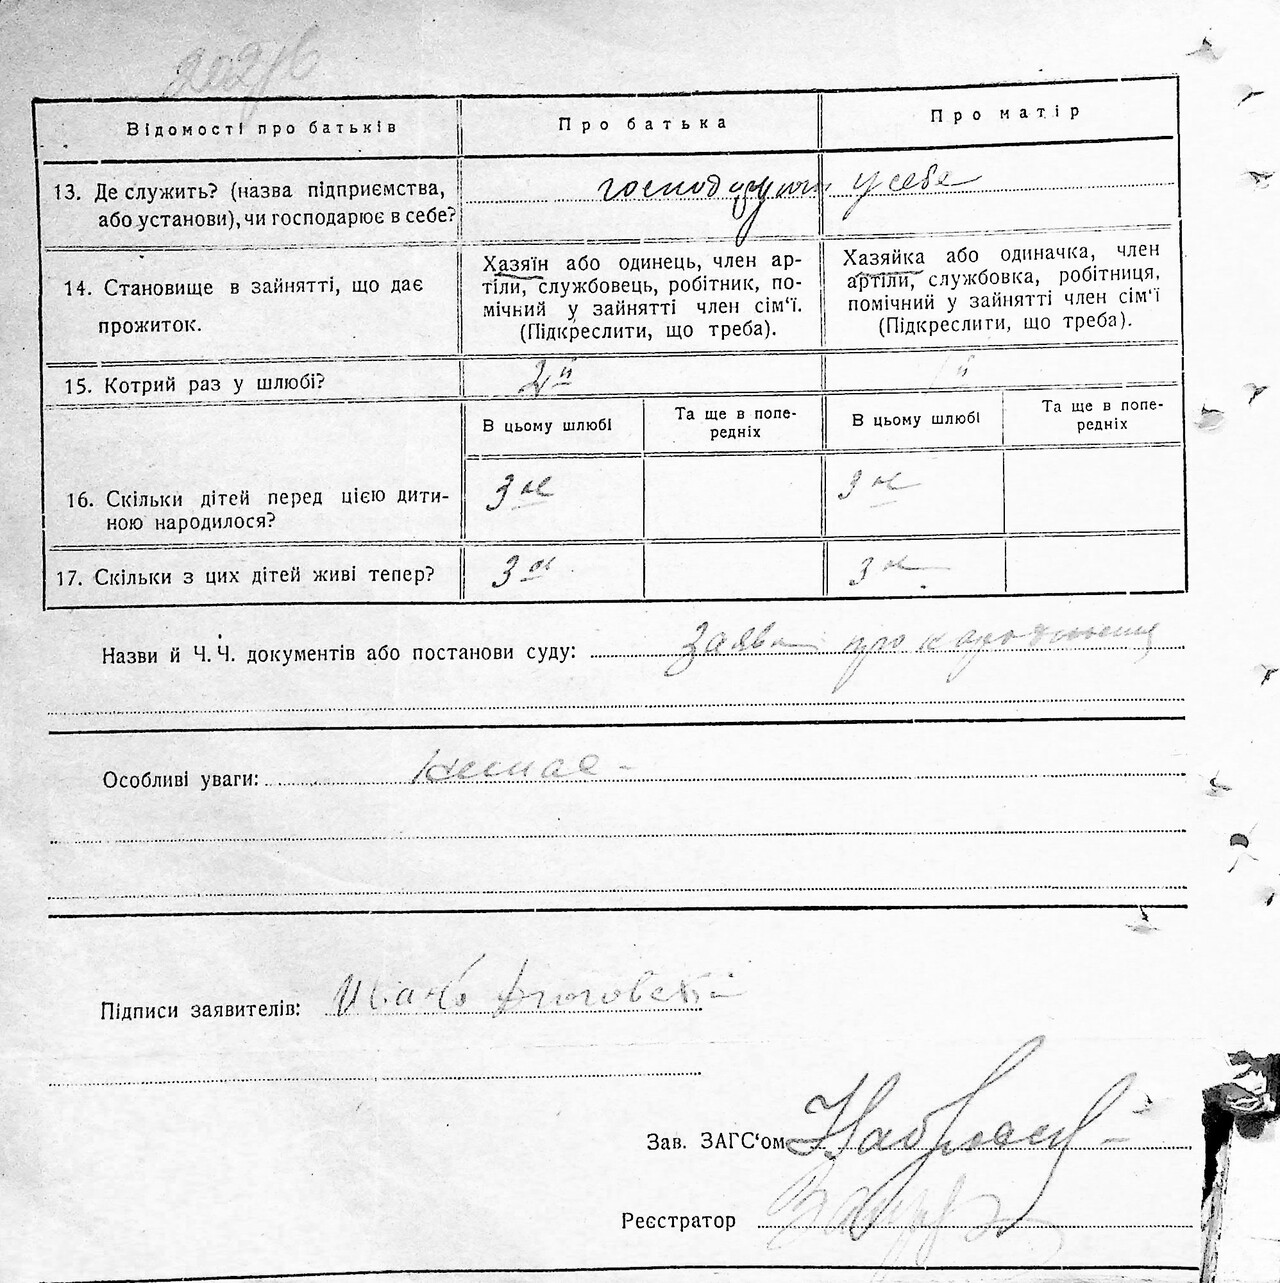 Відомості про батьків
Про батька
Про матір
13. Де служить? (назва підприємства,
або установи), чи господарює в себе?
господарюють у себе
14. Становище в зайнятті, що дає
прожиток.
Хазяїн або одинець, член ар-
тіли, службовець, робітник, по-
мічний у зайнятті член сім'ї.
(Підкреслити, що треба).
Хазяйка або одиначка, член
артіли, службовка, робітниця,
помічний у зайнятті член сім'ї
(Підкреслити, що треба).
15. Котрий раз у шлюбі?
2й
1й
В цьому шлюбі
Та ще в попе-
редніх
В цьому шлюбі
Та ще в попе-
редніх
16. Скільки дітей перед цією дити-
ною народилося?
3є
3є
17. Скільки з цих дітей живі тепер?
3є
3є
Назви й Ч. Ч. документів або постанови суду: Заява про народження
Особливі уваги: Немає -
Підписи заявителів: Иванъ
Зав. ЗАГС'ом
Реєстратор